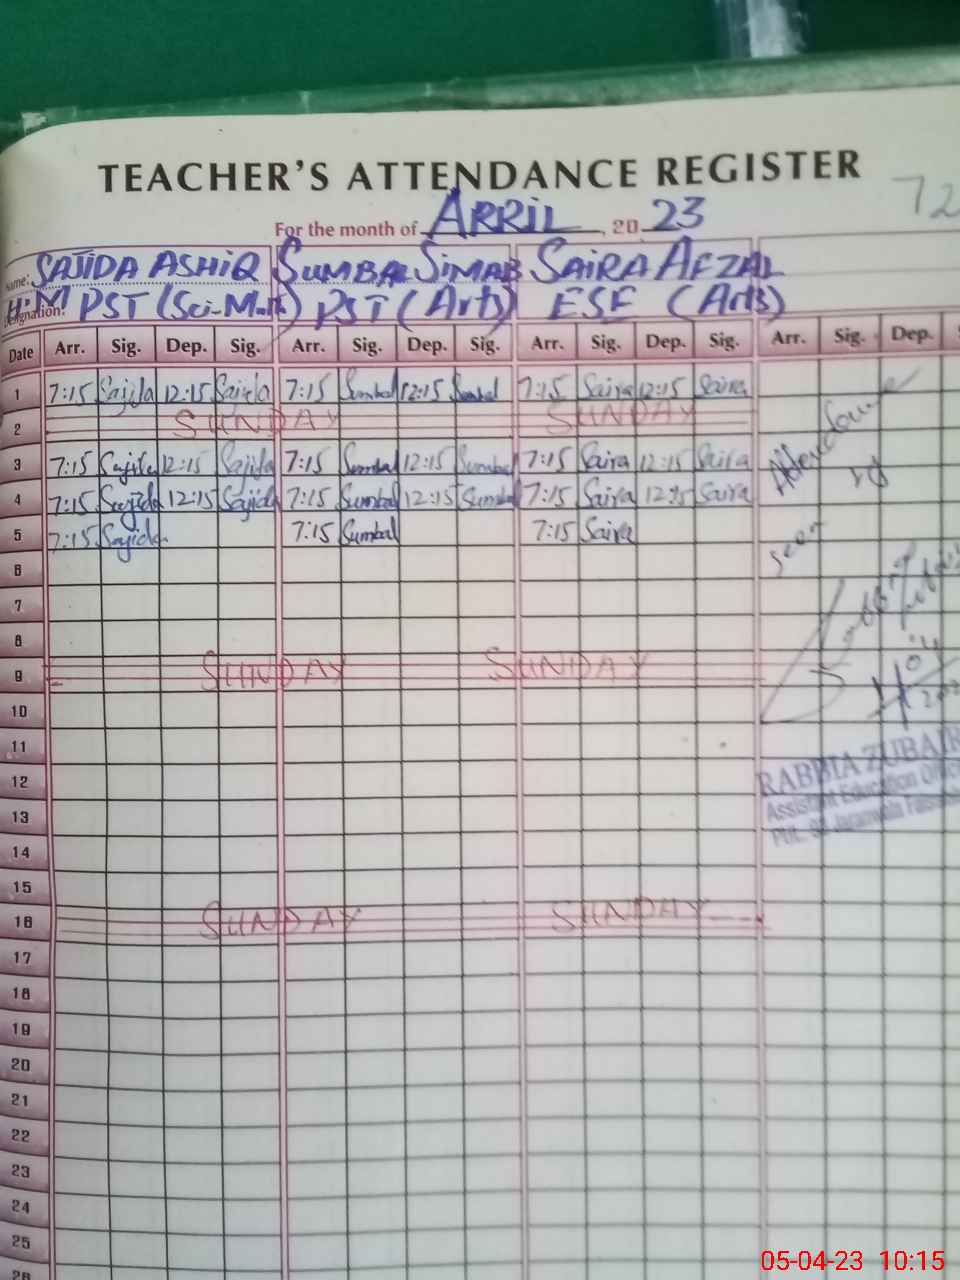 TEACHER'S ATTENDANCE REGISTER
72
For the month of ARRIL, 20 23
Name: SAJIDA ASHIQ SUMBAL SIMAB SAIRA AFZAL
Designation: H.M PST (Sci-Math) PST (Arts) ESE (Arts)
Date Arr. Sig. Dep. Sig. Arr. Sig. Dep. Sig. Arr. Sig. Dep. Sig. Arr. Sig. Dep.
1 7:15 Sajida 12:15 Sajida 7:15 Sumbal 12:15 Sumbal 7:15 Saira 12:15 Saira
2 SUNDAY SUNDAY
3 7:15 Sajida 12:15 Sajida 7:15 Sumbal 12:15 Sumbal 7:15 Saira 12:15 Saira
4 7:15 Sajida 12:15 Sajida 7:15 Sumbal 12:15 Sumbal 7:15 Saira 12:15 Saira
5 7:15 Sajida 7:15 Sumbal 7:15 Saira
Attendance
seen
6
7
8
9 SUNDAY SUNDAY
10
11
12
RABBIA ZUBAIR
Assistant Education Officer
13
14
15
16 SUNDAY SUNDAY
17
18
19
20
21
22
23
24
25
26
05-04-23 10:15